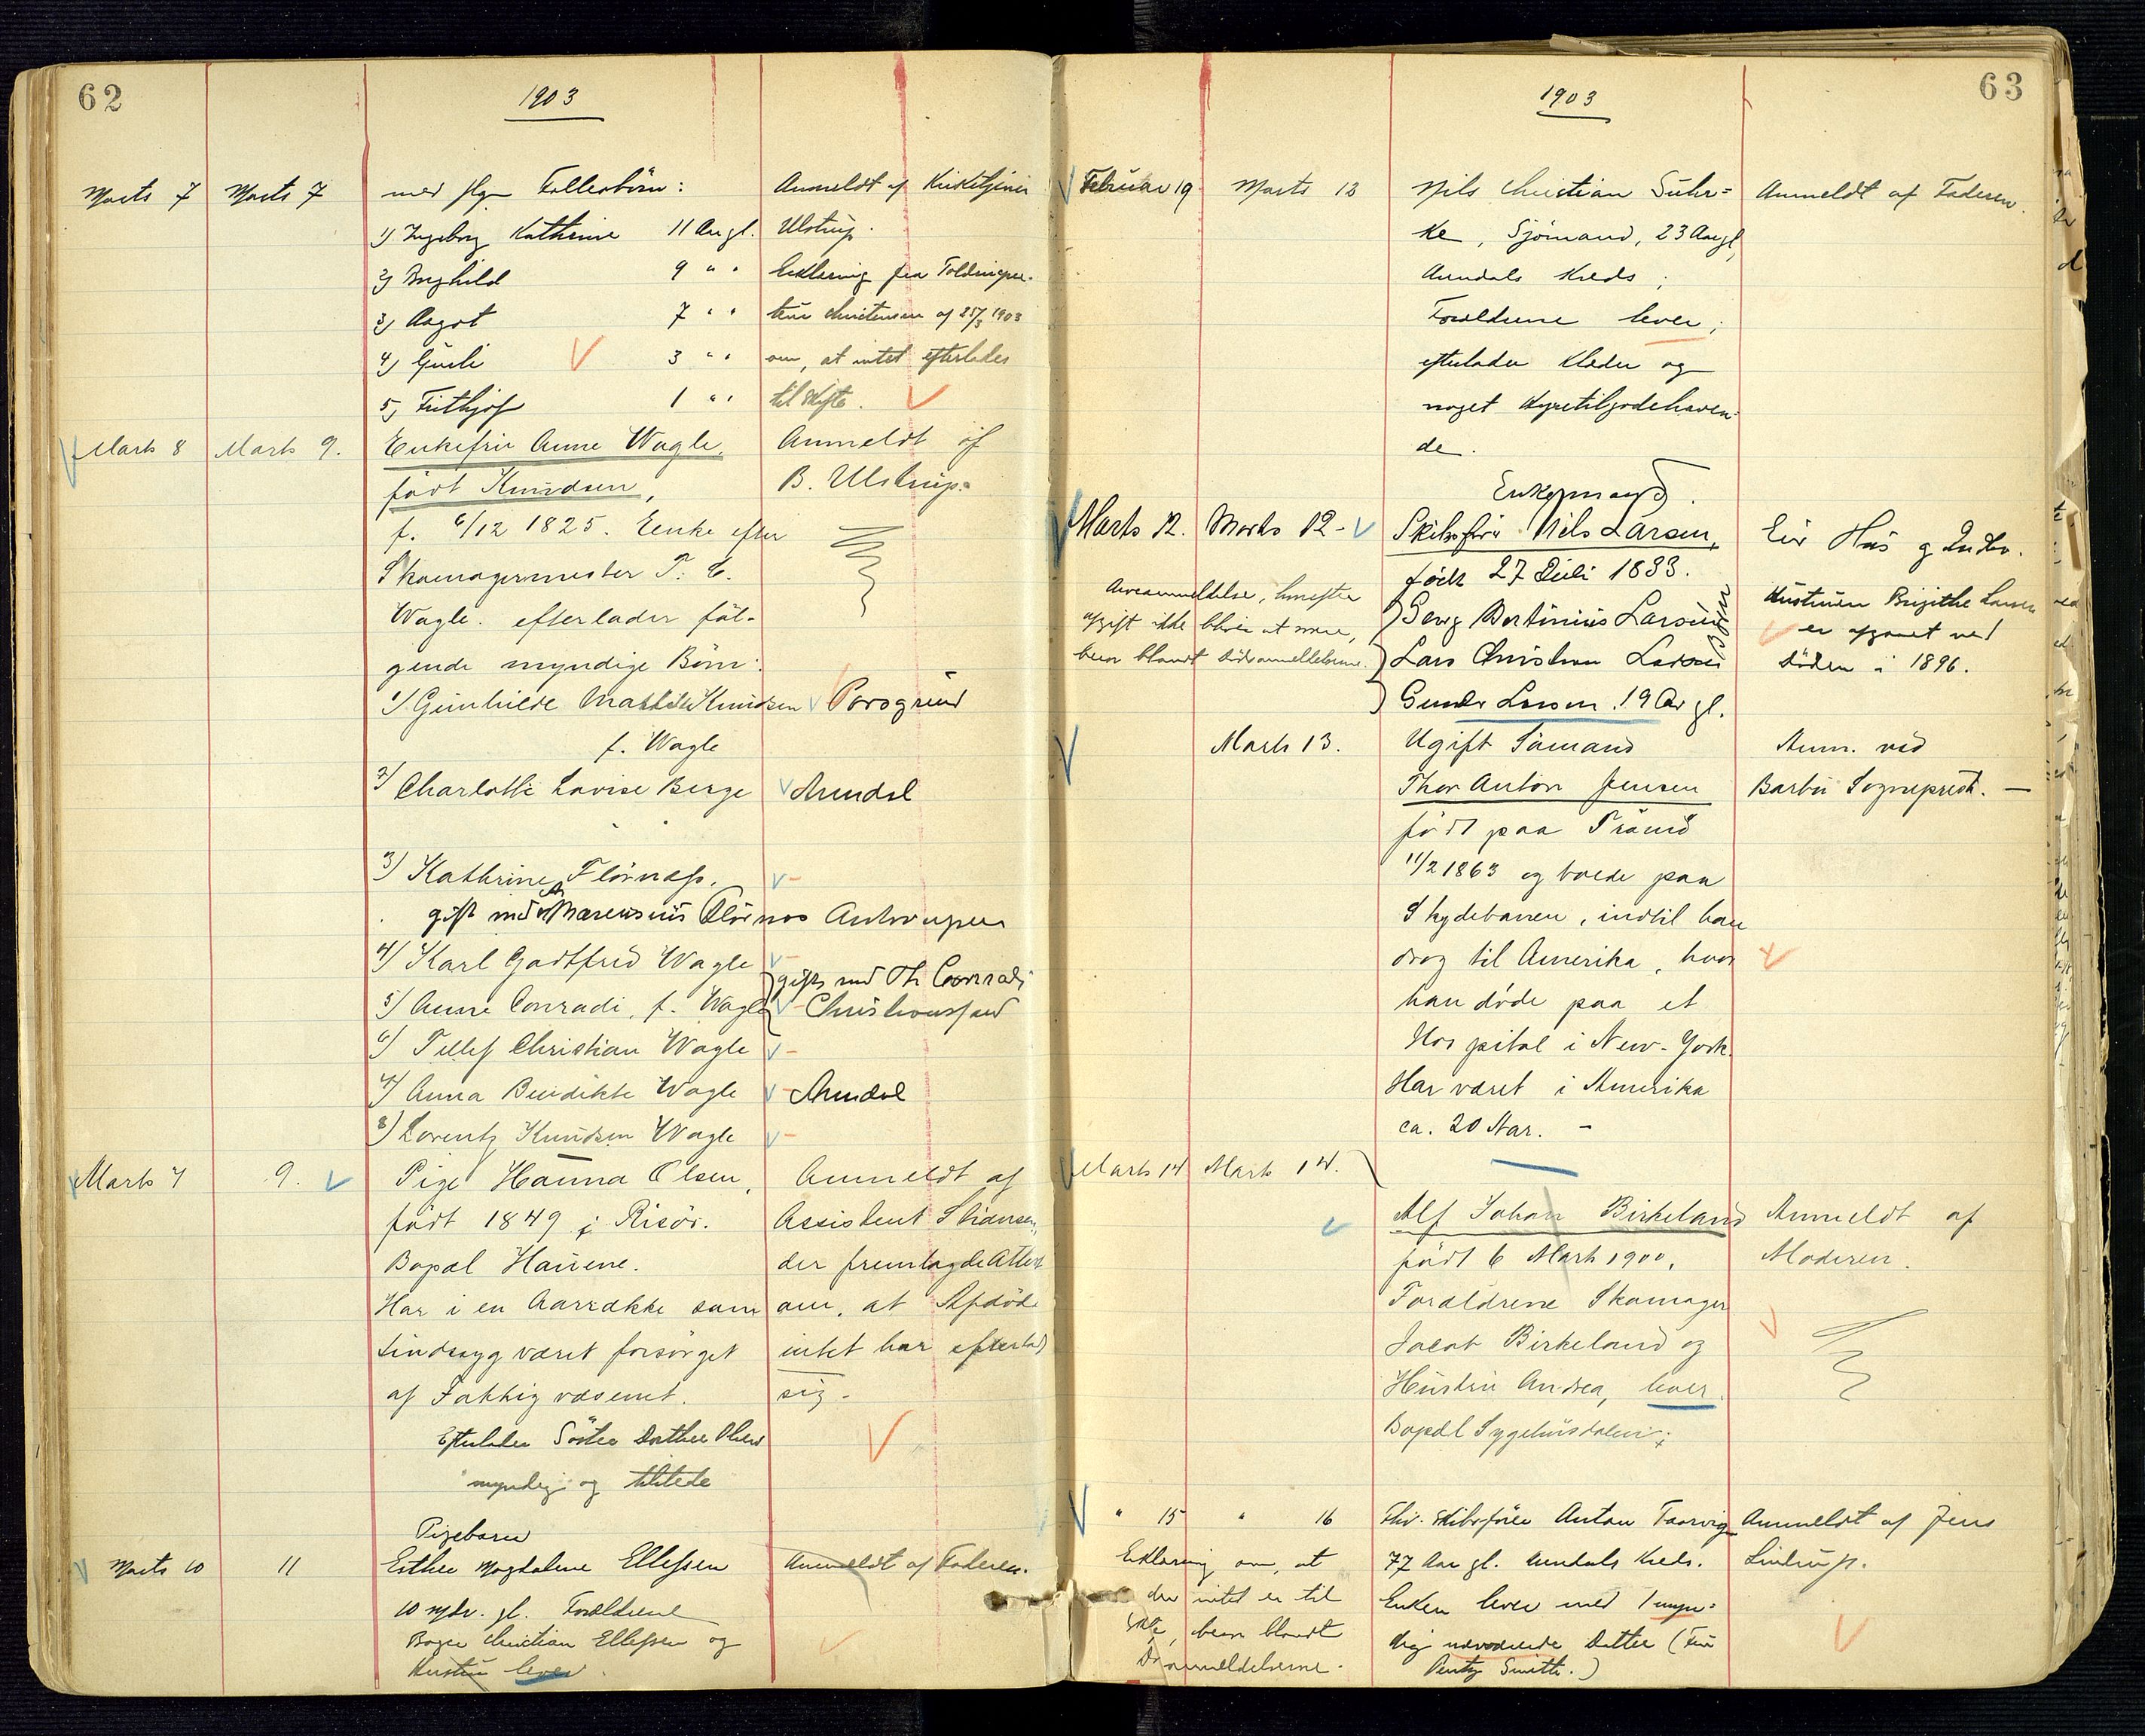 62
1903
Marts 7 Marts 7 med flg. Fællesbörn: Anmeldt af Kirketjener
1) Ingeborg Kathrine 11 Aar gl. Ulstrup.
2) Borghild 9 " " Erklæring fra Toldinspec-
3) Aagot 7 " " teur Christensen af 25/3 1903
4) Gunli 3 " " om, at intet efterlades
5) Frithjof 1 " " til Skifte.
Marts 8 Marts 9. Enkefru Anne Wagle, Anmeldt af
födt Knudsen, B. Ulstrup.
f. 6/12 1825. Enke efter
Skomagermester T. C.
Wagle. efterlader föl-
gende myndige Börn:
1) Gunhilde Mathilde Knudsen Porsgrund
f. Wagle
2) Charlotte Lovise Berge Arendal
3) Kathrine Flörnæss,
gift med Marensius Flörnæs Antwerpen
4) Karl Godtfred Wagle
gift med Th Conradi
5) Anne Conradi, f. Wagle Christianssand
6) Tellef Christian Wagle
7) Anna Bendikte Wagle Arendal
8) Lorentz Knudsen Wagle
Marts 7 9. Pige Hanna Olsen, Anmeldt af
födt 1849 i Risör. Assistent Stiansen,
Bopæl Hauene. der fremlagde Attest
Har i en Aarrække som om, at Afdöde
sindssyg været forsörget intet har efterladt
af Fattigvæsenet. sig.
Efterlader Söster Dorthea Olsen
myndig og tilstede
Pigebarn
Marts 10 11 Esther Magdalene Ellefsen Anmeldt af Faderen.
10 Mdr. gl. Forældrene
Bager Christian Ellefsen og
Hustru lever.
63
1903
Februar 19 Marts 12 Nils Christian Suhr= Anmeldt af Faderen.
ke, Sjömand, 23 Aar gl,
Arendals Kreds;
Forældrene lever;
efterlader Klæder og
noget Hyretilgodehaven=
de.
Enkemand.
Marts 12. Marts 12- Skibsförer Nils Larsen, Eier Hus g Indbo.
födt 27 Juli 1833.
Arveanmeldelse, hvorefter Georg Bertinius Larsen Hustruen Birgithe Larsen
afgift ikke bliver at svare, er afgaaet ved
beror blandt Dödsanmeldelserne. Lars Christian Larsen Döden i 1896.
Gunder Larsen. 19 Aar gl.
Marts 13. Ugift Sömand Anm. ved
Thor Anton Jensen Barbu Sognepræst. —
födt paa Tromö
11/2 1863 og boede paa
Skydebanen, indtil han
drog til Amerika, hvor
han döde paa et
Hospital i New-York.
Har været i Amerika
ca. 20 Aar. -
Marts 14 Marts 14.
Alf Johan Birkeland Anmeldt af
födt 6 Marts 1900, Moderen.
Forældrene Skomager
Jacob Birkeland og
Hustru Andrea, lever.
Bopæl Sygehusdalen;
" 15 " 16 Fhv. Skibsförer Anton Taarvig Anmeldt af Jens
Erklæring om, at 77 Aar gl. Arendals Kreds. Lintrup.
der intet er til Enken lever med 1 myn=
Skifte, beror blandt dig nærværende Datter (Fru
Dsanmeldelserne. Smith.)